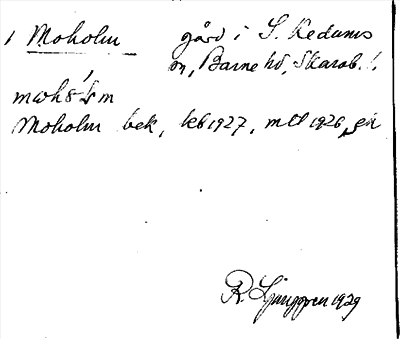 1 Moholm gård i S. Kedums
sn, Barne hd, Skarab. l.
Moholm bek, kb 1927, mtl 1926, gik
R. Ljunggren 1929